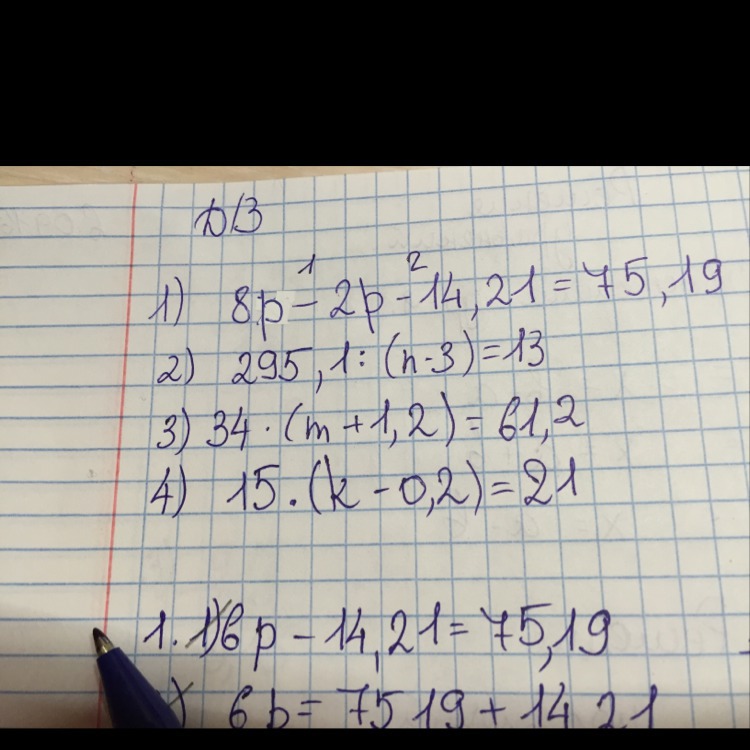 Д/З
1 2
1) 8p - 2p - 14,21 = 75,19
2) 295,1 : (n - 3) = 13
3) 34 · (m + 1,2) = 61,2
4) 15 · (k - 0,2) = 21
1. 1) 6p - 14,21 = 75,19
6p = 75,19 + 14,21